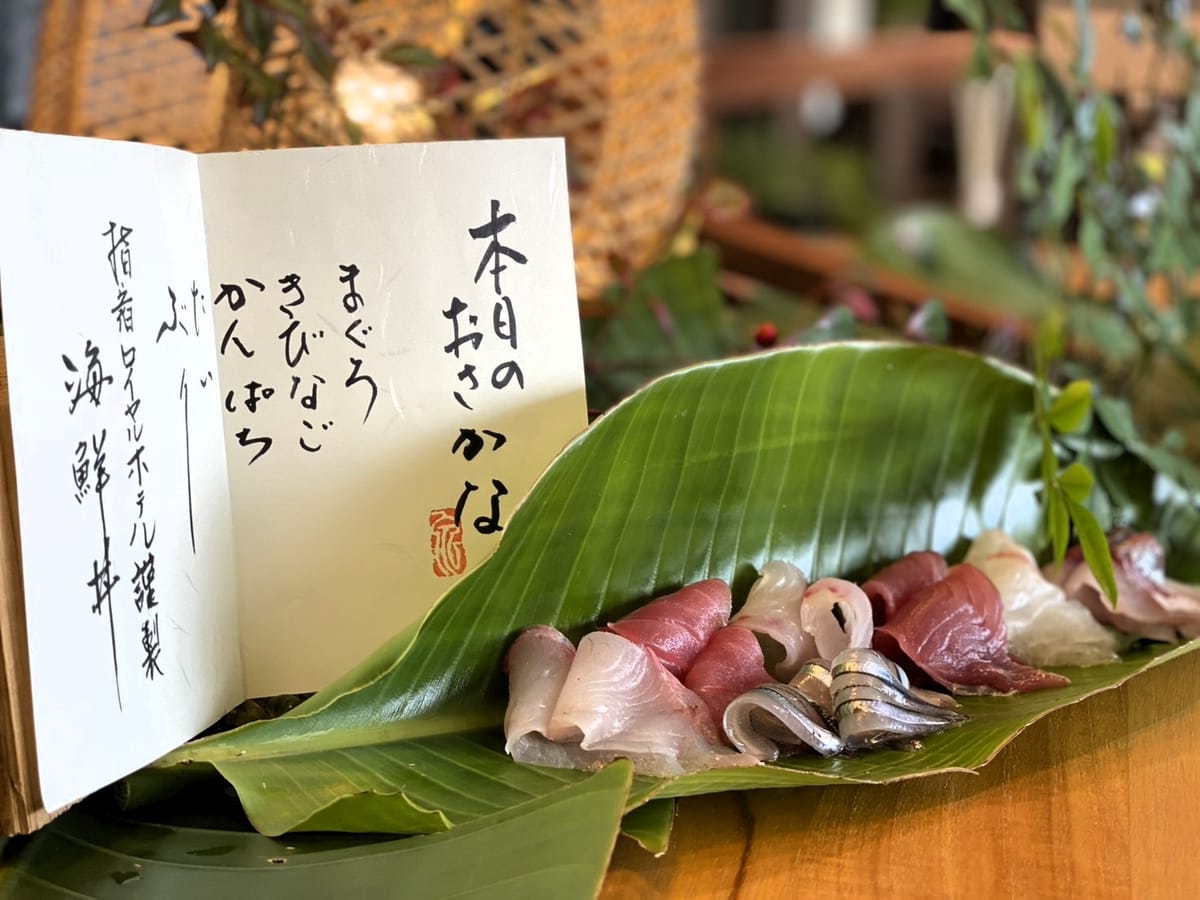 本日の
おさかな
まぐろ
きびなご
かんぱち
指宿ロイヤルホテル謹製
海鮮丼